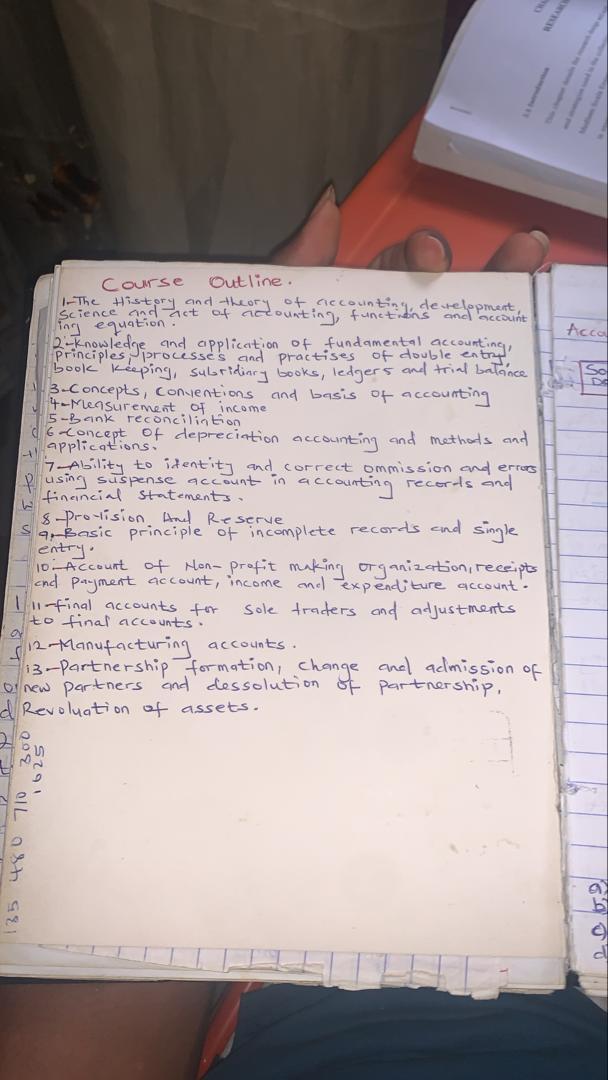 Course Outline.
1-The History and theory of accounting, development,
Science and act of accounting, functions and account
ing equation.
2-Knowledge and application of fundamental accounting,
principles, processes and practises of double entry,
book keeping, subsridiary books, ledgers and trial balance
3-Concepts, conventions and basis of accounting
4-Measurement of income
5-Bank reconciliation
6-Concept of depreciation accounting and methods and
applications.
7-Ability to identity and correct ommission and errors
using suspense account in accounting records and
financial statements.
8-Provision And Reserve
9-Basic principle of incomplete records and single
entry.
10-Account of Non-profit making organization, receipts
and payment account, income and expenditure account.
11-final accounts for sole traders and adjustments
to final accounts.
12-Manufacturing accounts.
13-Partnership formation, change and admission of
new partners and dessolution of partnership,
Revoluation of assets.
135 480 710 300
1625
RESEARCH
3.1 Introduction
Acco
So
a)
b)
c)
d